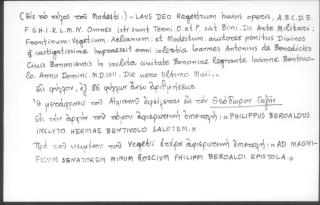 (Εἰς τὸ τέλος τοῦ Modesti:) – LAUS DEO Regestrum huius operis, A.B.C.D.E.
F.G.H.I.K.L.M.N. Omnes isti sunt Tern. O. et P. sūt Bini. De Arte Militari:
Frontinum: Vegetium: Aelianum: et Modestum auctores penitus Divinos
& castigatissime Impraessit omni solertia Ioannes Antonius de Benedictis
Civis Bononiensis In inclita civitate Bononiae Regnante Ioanne Bentivo-
lo. Anno Domini. M.D.IIII. Die vero Ultimo Maii..–
Εἰς φύλλον, ἐξ 86 φύλλων ἄνευ ἀριθμήσεως.
Ἡ μετάφρασις τοῦ Αἰλιανοῦ ὀφείλεται εἰς τὸν Θεόδωρον Γαζῆν
Εἰς τὴν ἀρχὴν τοῦ τόμου ἀφιερωτικὴ ἐπιστολή: « PHILIPPUS BEROALDUS
INCLYTO HERMAE BENTIVOLO SALUTEM.»
Πρὸ τοῦ κειμένου τοῦ Vegetii ἑτέρα ἀφιερωτικὴ ἐπιστολή: « AD MAGNI-
FICUM SENATOREM MINUM ROSCIUM PHILIPPI BEROALDI EPISTOLA.»